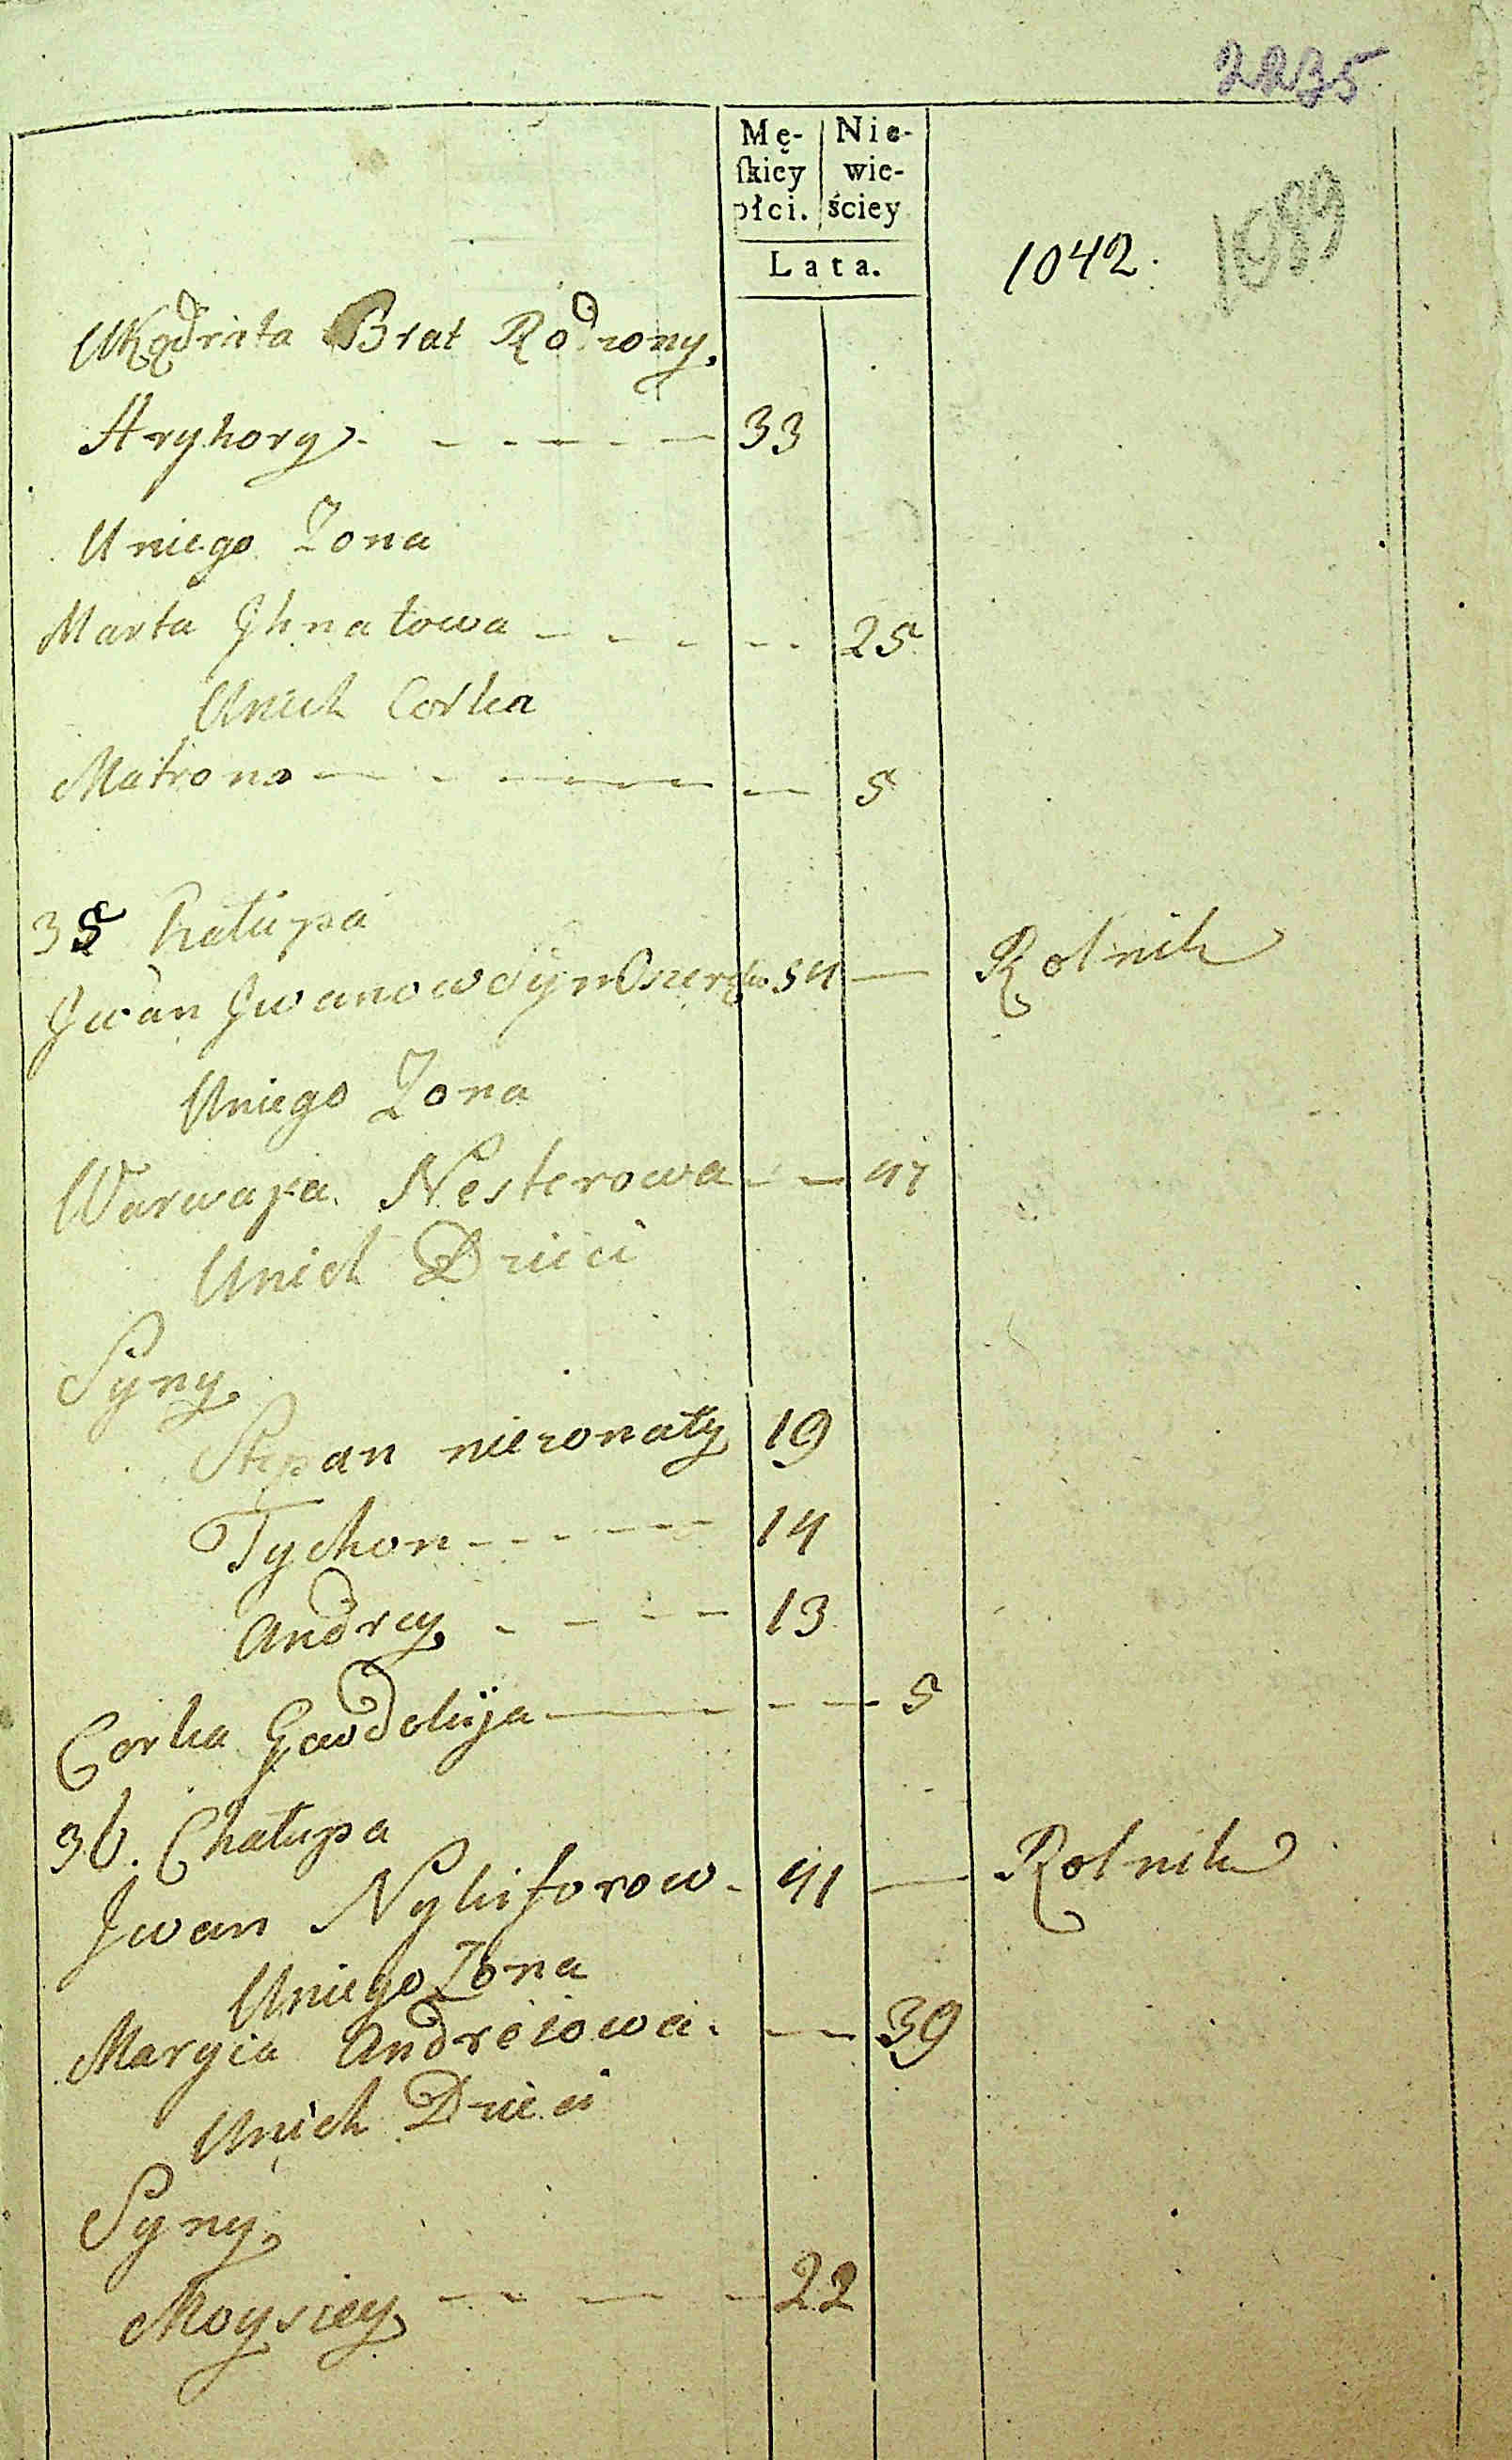 2235
Mę- Nie-
ſkiey wie-
płci. ściey
Lata.
1042. 1089
UKądrata Brat Rodzony
Hryhory - - - - - 33
Uniego Zona
Marta Jhnatowa - - - - - 25
Unich Corka
Matrona - - - - - 5
35 Chałupa
Jwan Jwanow Syn 54 — Rolnik
Uniego Zona
Warwara Nesterowa - - 47
Unich Dzieci
Syny
Stepan niezonaty 19
Tychon - - - - - 14
Andrey - - - - 13
Corka Ewdokija - - - 5
36. Chałupa
Jwan Nykiforow - 41 — Rolnik
Uniego Zona
Maryia Andreiowa. - - 39
Unich Dzieci
Syny
Moysiey - - - - 22